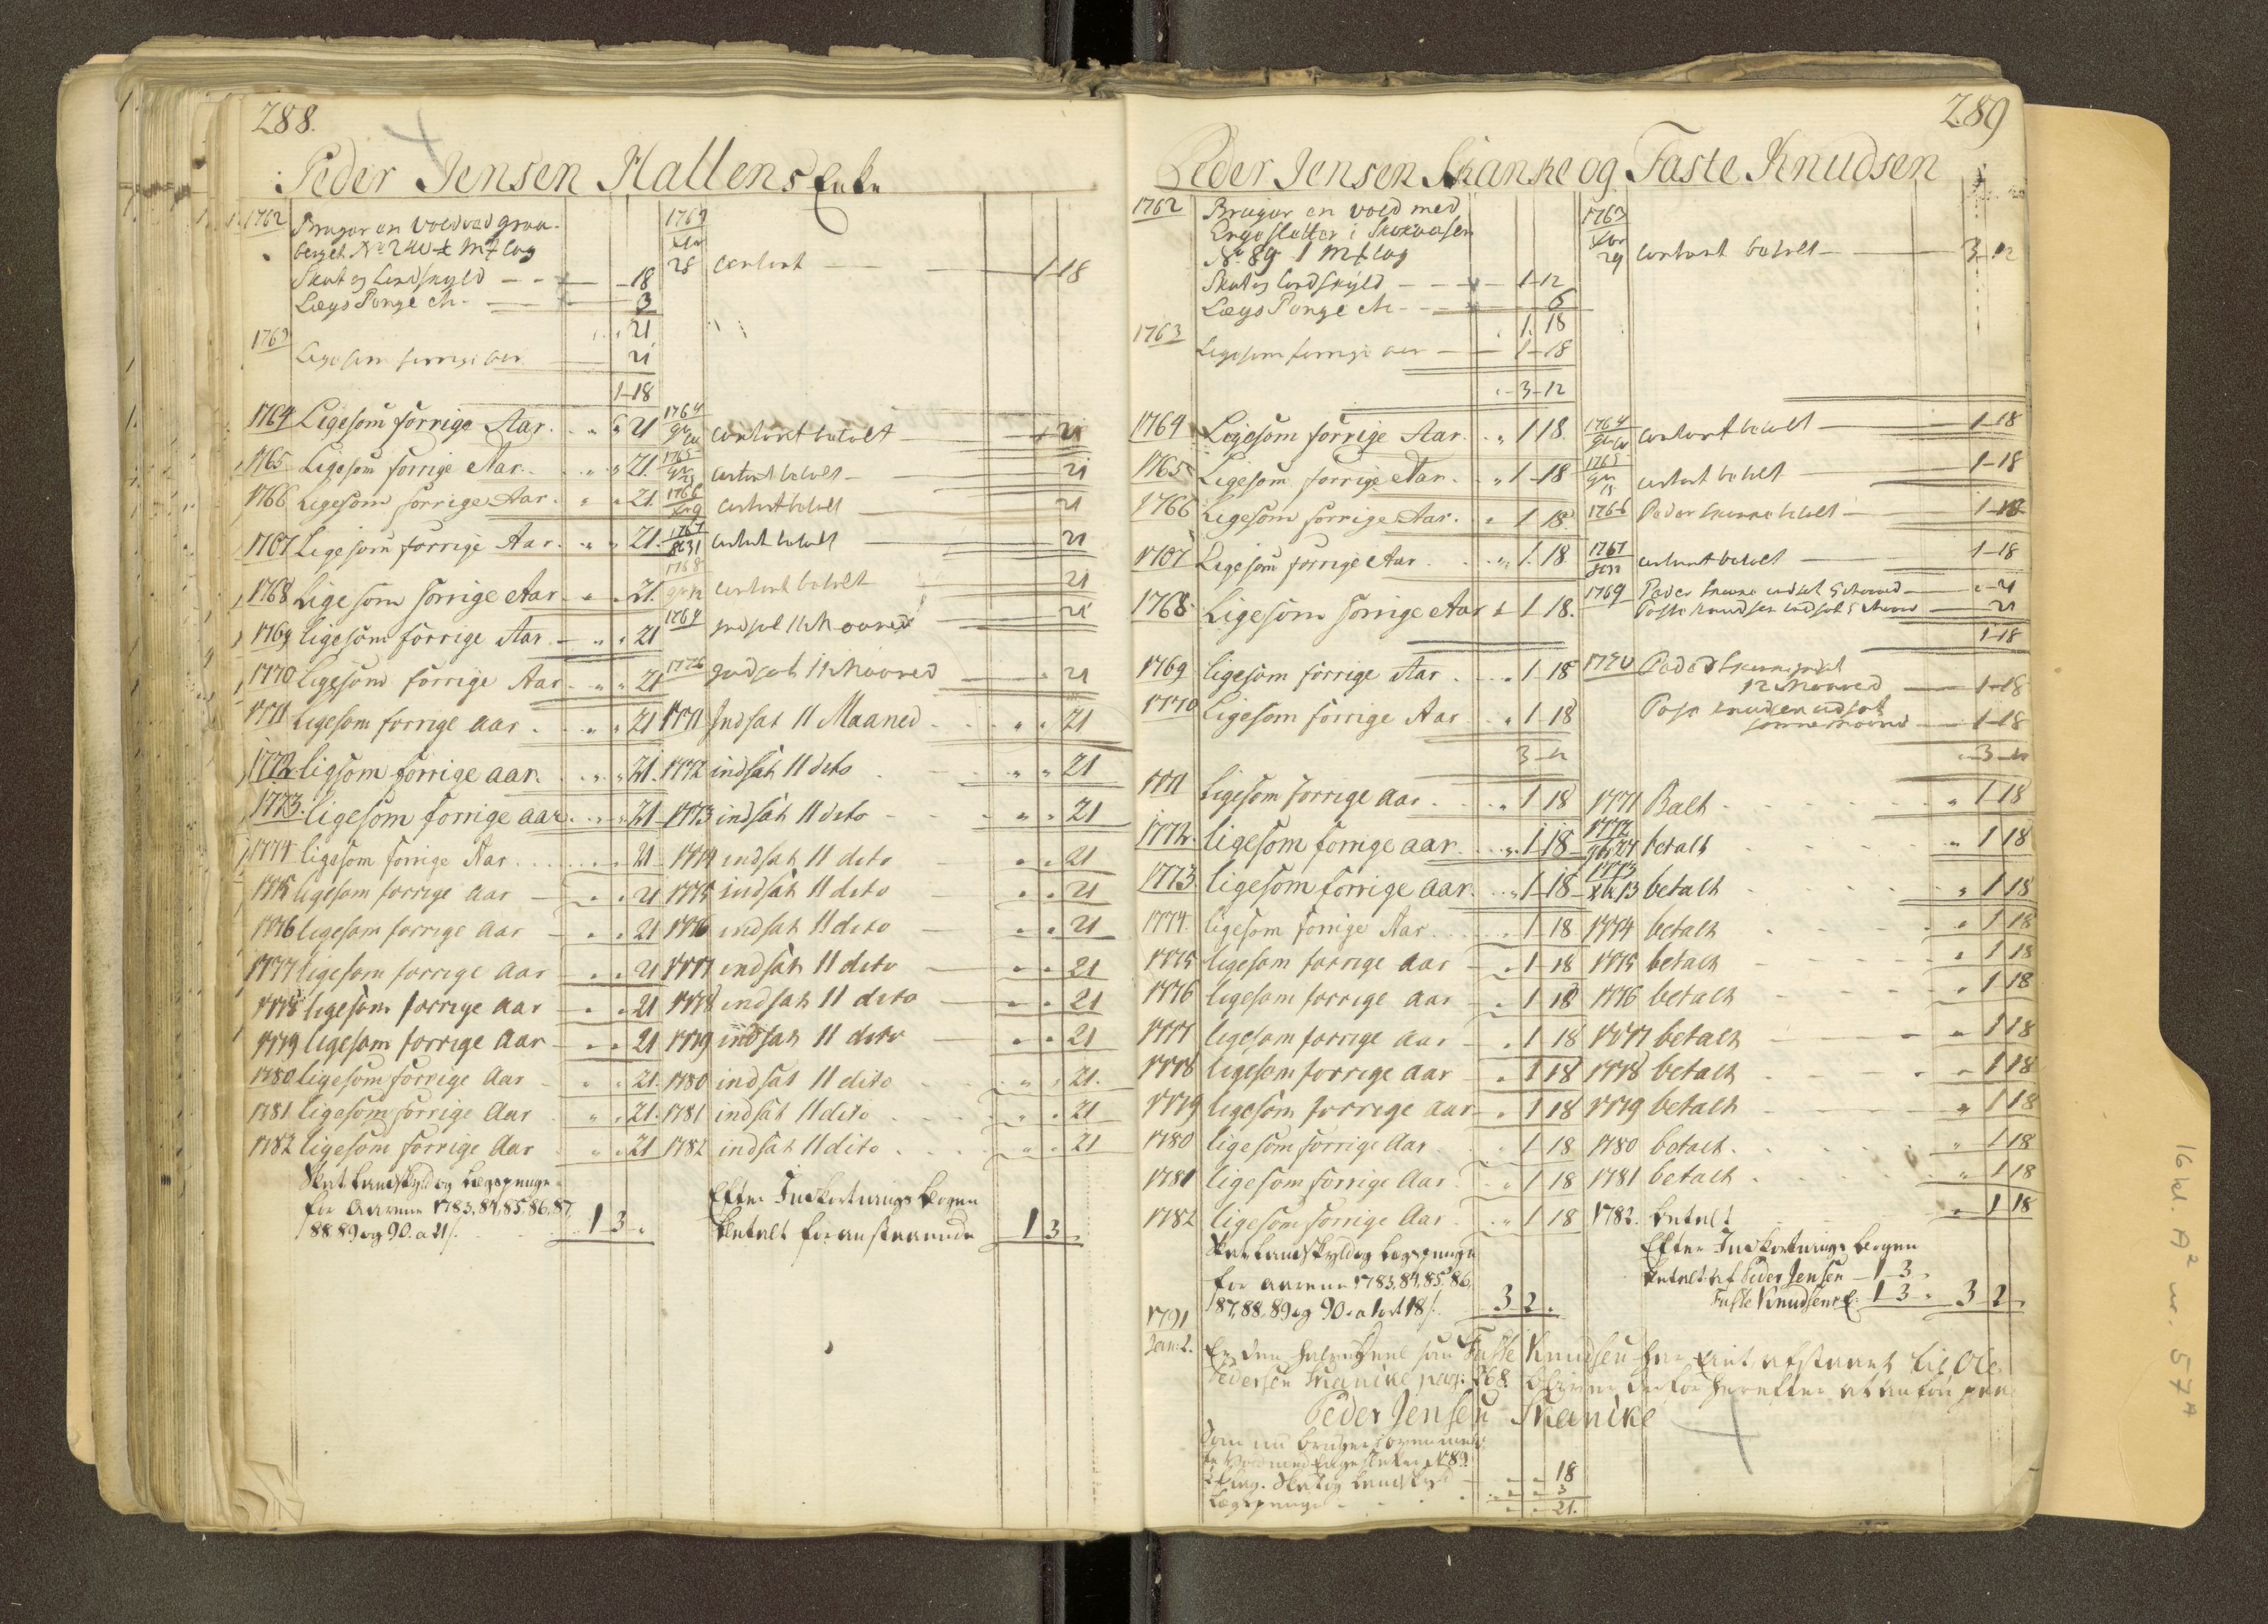 288.
Peder Jensen Hallens Enke
1762 Bruger en Vold ved graa-
berget No 240 ½ Mk lag
Skat og Landskyld - - 18
Lægs Penge etc. 3
21
1763 Ligesom forrige aar 21
1-18
1764 Ligesom forrige Aar. 21
1765 Ligesom forrige Aar. 21
1766 Ligesom forrige Aar. 21
1767 Ligesom forrige Aar. 21
1768 Ligesom forrige Aar 21
1769 ligesom forrige Aar 21
1770 ligesom forrige Aar 21
1771 Ligesom forrige aar 21
1772 ligsom forrige aar 21
1773. ligesom forrige aar 21
1774 ligesom forrige Aar 21
1775 ligesom forrige aar 21
1776 ligesom forrige Aar 21
1777 ligesom forrige Aar 21
1778 ligesom forrige aar 21
1779 ligesom forrige Aar 21
1780 ligesom forrige Aar 21
1781 ligesom forrige Aar 21
1782 ligesom forrige Aar 21
Skat Landskyld og Lægspenge
for Aarene 1783, 84, 85, 86, 87,
88 89 og 90. a 21 s. 1 3
28 contant 1-18
1764 contant betalt 21
1765 contant betalt 21
1766 contant betalt 21
1767 contant betalt 21
1768 contant betalt 21
1769 indsat 11 Maaned 21
1770 indsat 11 Maaned 21
1771 Indsat 11 Maaned 21
1772 indsat 11 dito 21
1773 indsat 11 dito 21
1774 indsat 11 dito 21
1775 indsat 11 dito 21
1776 indsat 11 dito 21
1777 indsat 11 dito 21
1778 indsat 11 dito 21
1779 indsat 11 dito 21
1780 indsat 11 dito 21.
1781 indsat 11 dito 21
1782 indsat 11 dito 21
Efter Inskortnings Bogen
betalt foranstaaende 1 3
289
Peder Jensen Skanke og Faste Knudsen
1762 Bruger en vold med
Enge Sletter i Skokaasen
No 89 1 Mk lag
Skat og Landskyld 1-12
Lægs Penge etc 6
1. 18
1763 Ligesom forrige aar 1-18
3-12
1764 Ligesom forrige Aar. 1 18
1765 Ligesom forrige Aar. 1-18
1766 Ligesom forrige Aar. 1 18
1767 Ligesom forrige Aar 1. 18
1768 Ligesom forrige Aar 1 18.
1769 ligesom forrige Aar 1-18
1770 Ligesom forrige Aar 1-18
3-12
1771 ligesom forrige Aar 1 18
1772. ligesom forrige aar 1 18
1773. ligesom forrige aar 1-18
1774. ligesom forrige Aar 1 18
1775 ligesom forrige Aar 1 18
1776 ligesom forrige Aar 1 18
1777 ligesom forrige aar 1 18
1778 ligesom forrige Aar 1 18
1779 ligesom forrige aar 1 18
1780 ligesom forrige Aar 1 18
1781 ligesom forrige Aar 1 18
1782 ligesom forrige Aar 1 18
Skat Landskyld og Lægspenge
for aarene 1783, 84, 85, 86,
87, 88, 89 og 90. a 1 ort 18 s. 3 2.
1763 29 contant betalt 3-12
1764 contant betalt 1-18
1765 contant betalt 1-18
1766 Peder Skanke betalt 1-18
1767 contant betalt 1-18
1769 Peder Skanke indsat 5 Maaned 21
Faste Knudsen indsat 5 Maaned 21
1-18
1770 Peder Skanke indsat
12 Maaned 1-18
Faste Knudsen indsat
samme Maaned 1-18
3-12
1771 Balt 1 18
1772 betalt 1 18
1773 13 betalt 1 18
1774 betalt 1 18
1775 betalt 1 18
1776 betalt 1 18
1777 betalt 1 18
1778 betalt 1 18
1779 betalt 1 18
1780 betalt 1 18
1781 betalt 1 18
1782. betalt 1 18
Efter Inskortnings Bogen
betalt af Peder Jensen 1 3
Faste Knudsen 1 3 3 2
1791
Jan: 2. Er den halve Deel som Faste Knudsen har eiet, afstaaet til Ole
Pedersen Skancke pag: 268. bliver derfor herefter at anføre paa
Peder Jensen Skancke
som nu bruger
No 89
Skat og Landskyld 18
Lægspenge 3
21.
16 kl. A² nr. 57 A